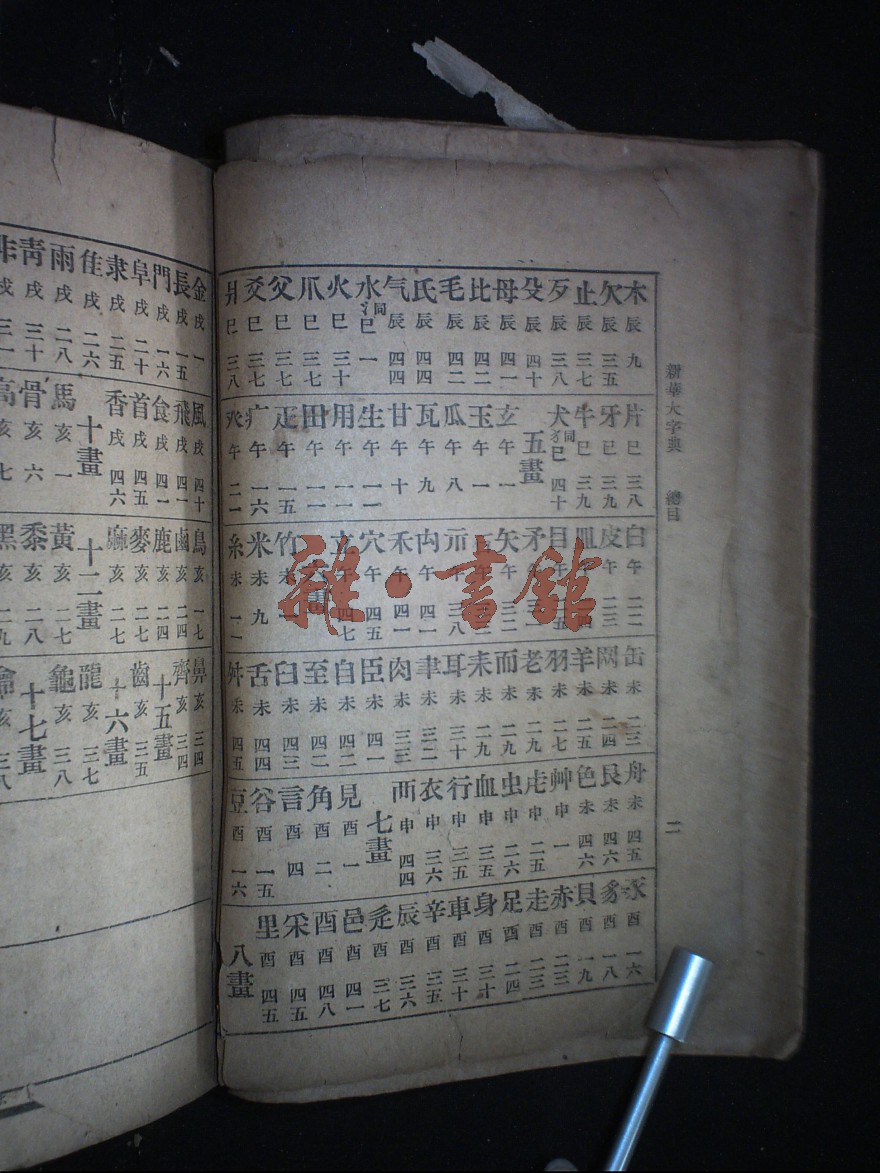 新華大字典 總目 二
木 辰 九
欠 辰 三五
止 辰 三七
歹 辰 三八
殳 辰 四十
母 辰 四一
比 辰 四一
毛 辰 四二
氏 辰 四四
气 辰 四四
水 氵同 巳 一
火 巳 三十
爪 巳 三七
父 巳 三七
爻 巳 三七
爿 巳 三八
片 巳 三八
牙 巳 三九
牛 巳 三九
犬 犭同 巳 四十
五畫
玄 午 一
玉 午 一
瓜 午 八
瓦 午 九
甘 午 十
生 午 一一
用 午 一一
田 午 一一
疋 午 一五
疒 午 一六
癶 午 二一
白 午 二二
皮 午 二三
皿 午
目 午
矛 午
矢 午 三二
午
示 午 三八
禸 午 四一
禾 午 四一
穴 午 四五
立 午 四七
六畫
竹 未 一
米 未 九
糸 未 一一
缶 未 二三
网 未 二四
羊 未 二五
羽 未 二七
老 未 二九
而 未 二九
耒 未 二九
耳 未 三十
聿 未 三二
肉 未 三三
臣 未 四一
自 未 四二
至 未 四二
臼 未 四三
舌 未 四四
舛 未 四五
舟 未 四五
艮 未 四六
色 未 四六
艸 申 一
虍 申 二五
虫 申 二六
血 申 三五
行 申 三五
衣 申 三六
襾 申 四四
七畫
見 酉 一
角 酉 二
言 酉 四
谷 酉 一五
豆 酉 一六
豕 酉 一六
豸 酉 一八
貝 酉 一九
赤 酉 二三
走 酉 二三
足 酉 二四
身 酉 三十
車 酉 三十
辛 酉 三五
辰 酉 三六
辵 酉 三七
邑 酉 四一
酉 酉 四八
釆 酉 四五
里 酉 四五
八畫
金 戌 一
長 戌 一五
門 戌 一六
阜 戌 二十
隶 戌 二五
隹 戌 二六
雨 戌 二八
青 戌 三十
非 戌 三一
風 戌 四十
飛 戌 四一
食 戌 四二
首 戌 四五
香 戌 四六
十畫
馬 亥 一
骨 亥 六
高 亥 七
鳥 亥 一七
鹵 亥 二四
鹿 亥 二四
麥 亥 二七
麻 亥 二七
十二畫
黃 亥 二七
黍 亥 二八
黑 亥 二九
鼻 亥 三四
齊 亥 三四
十五畫
齒 亥 三五
十六畫
龍 亥 三七
龜 亥 三八
十七畫
龠 亥 三八
雜·書館